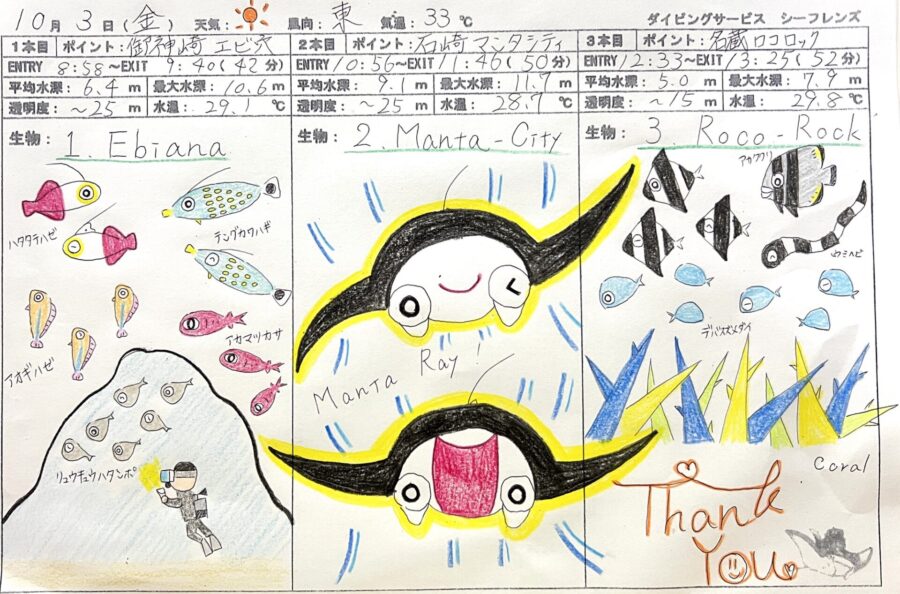 10月3日(金) 天気: 風向: 東 気温: 33℃ ダイビングサービス シーフレンズ
1本目 ポイント: 御神崎 エビ穴
ENTRY 8:58~EXIT 9:40(42分)
平均水深: 6.4 m 最大水深: 10.6 m
透明度: ~25 m 水温: 29.1 ℃
生物: 1. Ebiana
ハタタテハゼ
テングカワハギ
アカマツカサ
アオギハゼ
リュウキュウハタンポ
2本目 ポイント: 石崎 マンタシティ
ENTRY 10:56~EXIT 11:46(50分)
平均水深: 9.1 m 最大水深: 11.7 m
透明度: ~25 m 水温: 28.7 ℃
生物: 2. Manta-City
Manta Ray!
3本目 ポイント: 名蔵ロコロック
ENTRY 12:33~EXIT 13:25(52分)
平均水深: 5.0 m 最大水深: 7.9 m
透明度: ~15 m 水温: 29.8 ℃
生物: 3. Roco-Rock
ウミヘビ
デバスズメダイ
Coral
Thank
You